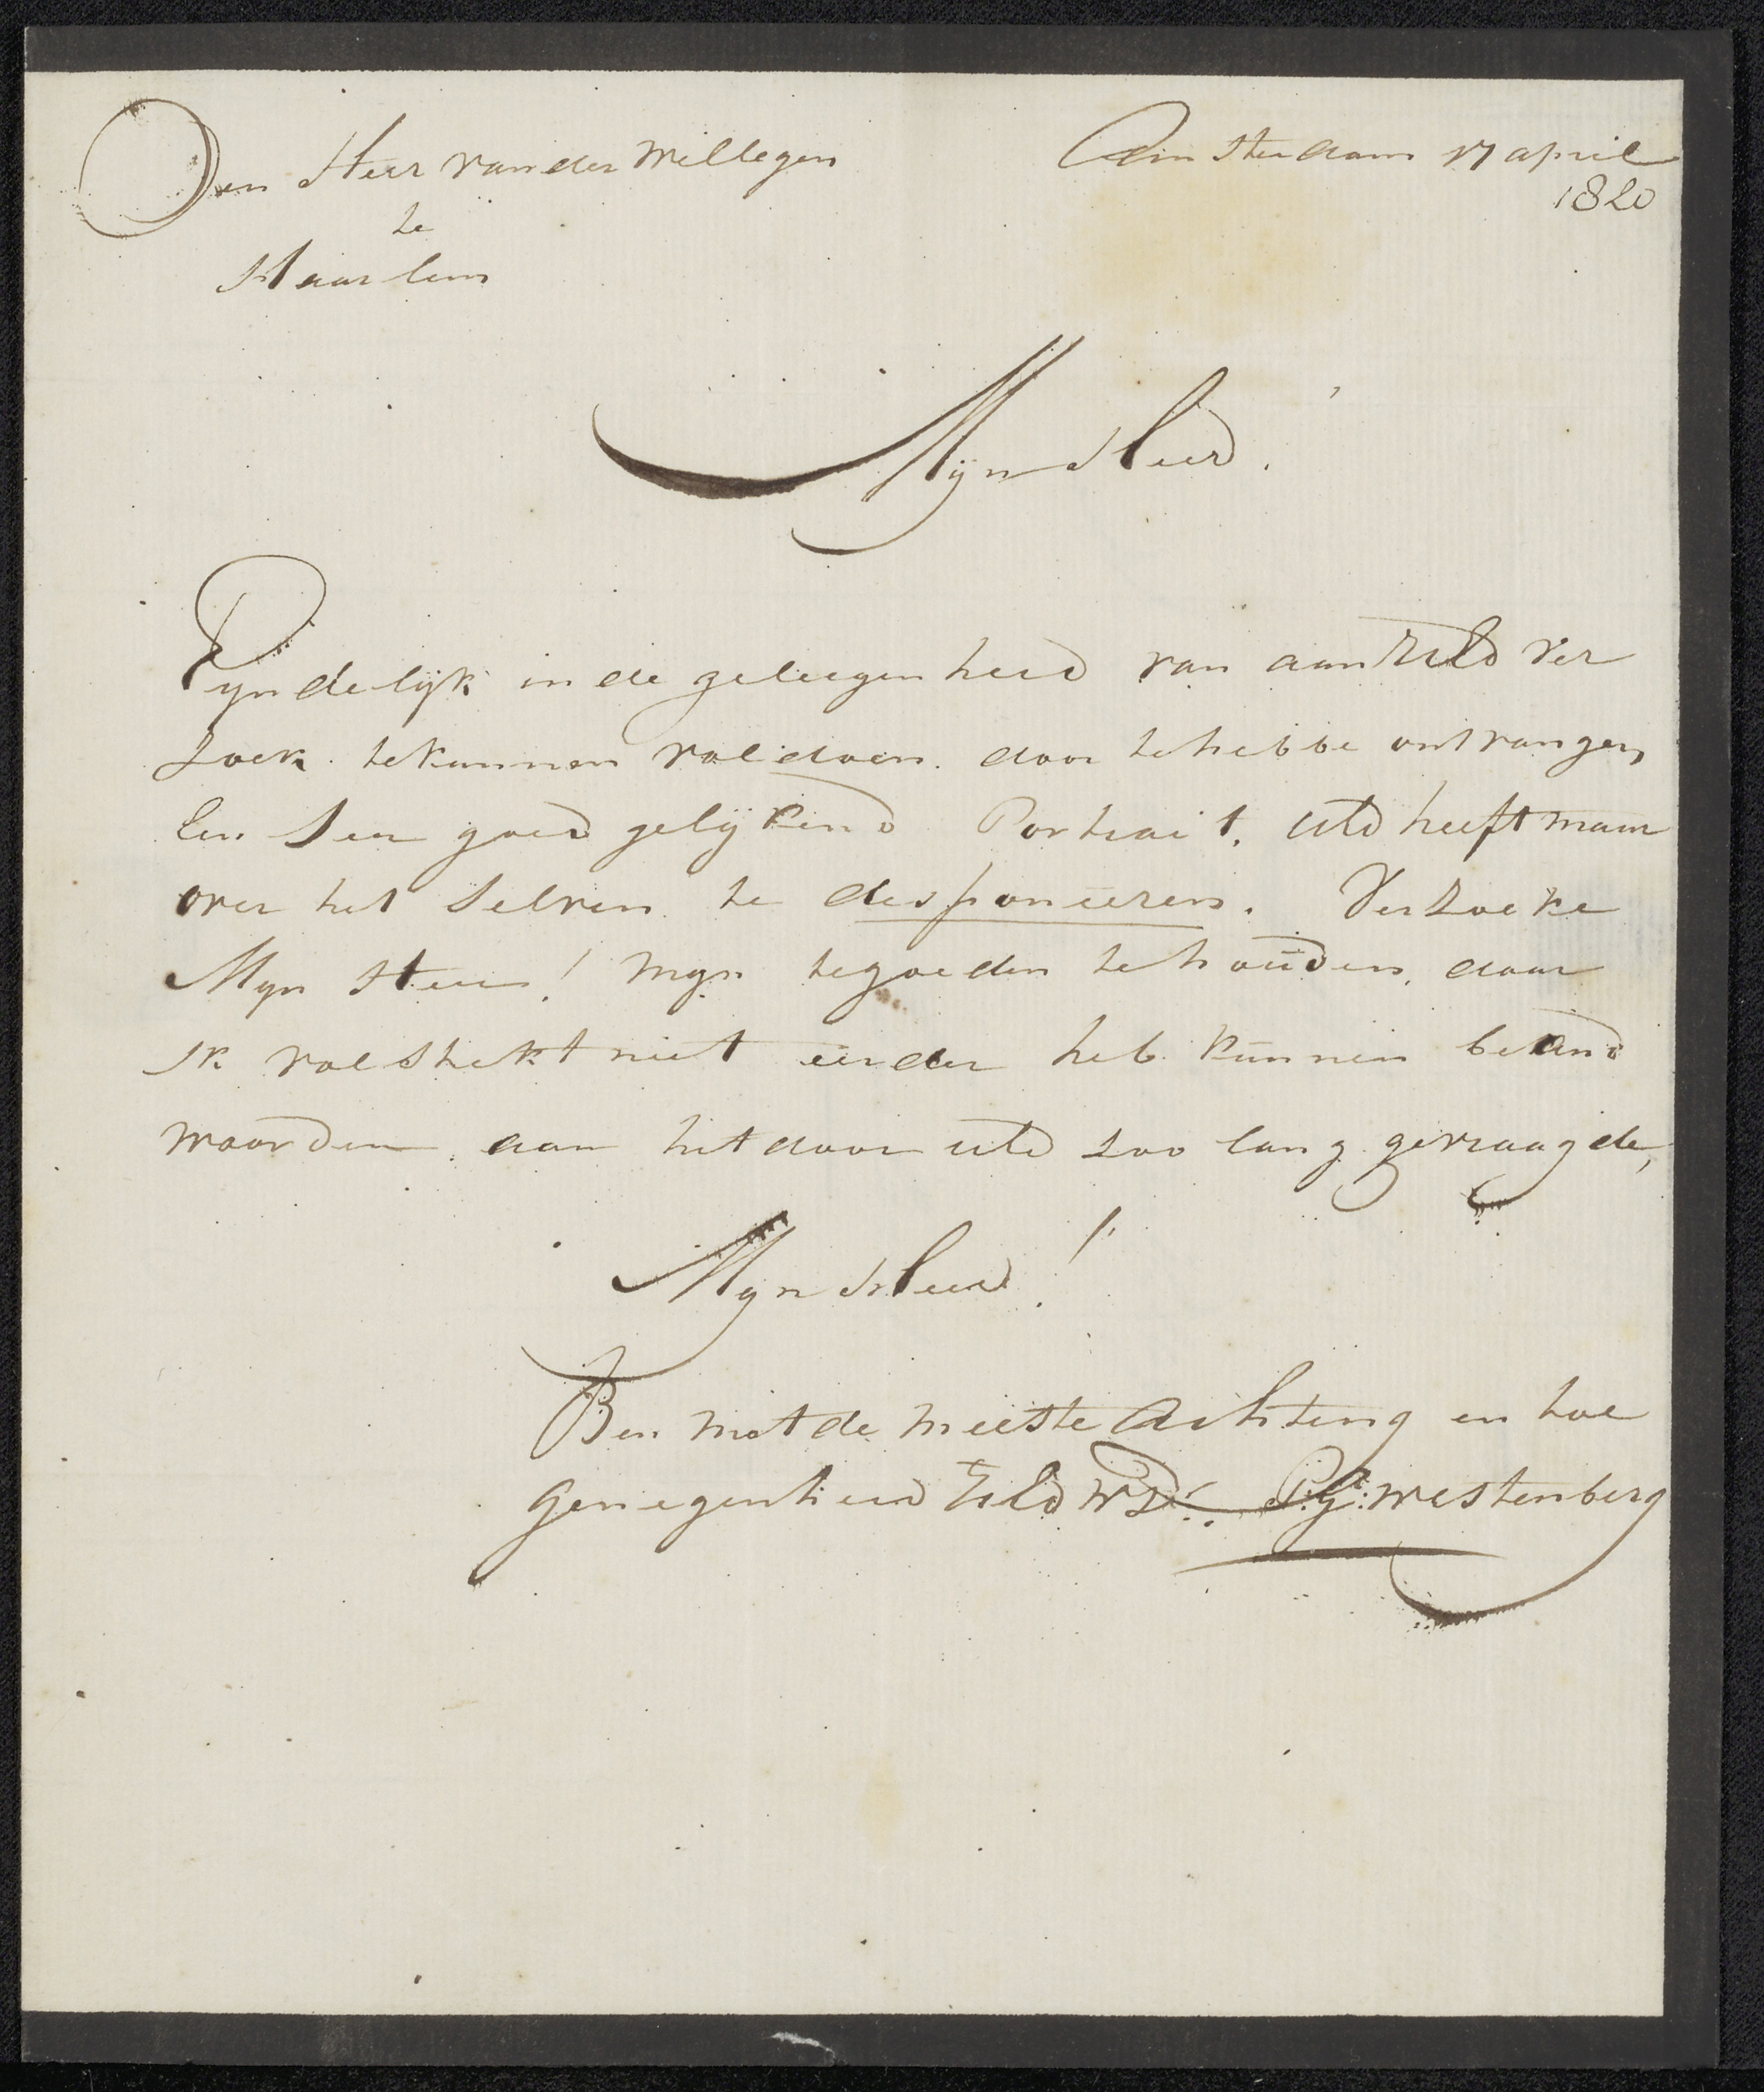 Den Heer van der Willegen
Amsterdam 17 april
1820
te
Haarlem
Mÿn Heer.
Eyndelijk in de geleegenheid van aan UEd ver
zoek te kunnen voldoen door te hebbe ontvangen,
een seer goed gelijkend Portrait. UEd heeft maar
over het selven te desponeeren. Verzoeke
Mijn Heer! mijn tegoeden te houden, daar
ik volstrekt niet eerder heb kunnen beand
woorden aan het door UEd zoo lang gevraagde,
Mijn Heer!
Ben met de meeste Achting en toe
genegenheid UEd WD: P:G: Westenberg